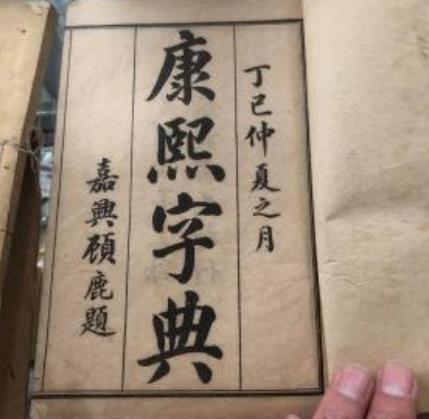 丁巳仲夏之月
康熙字典
嘉興顧鹿題